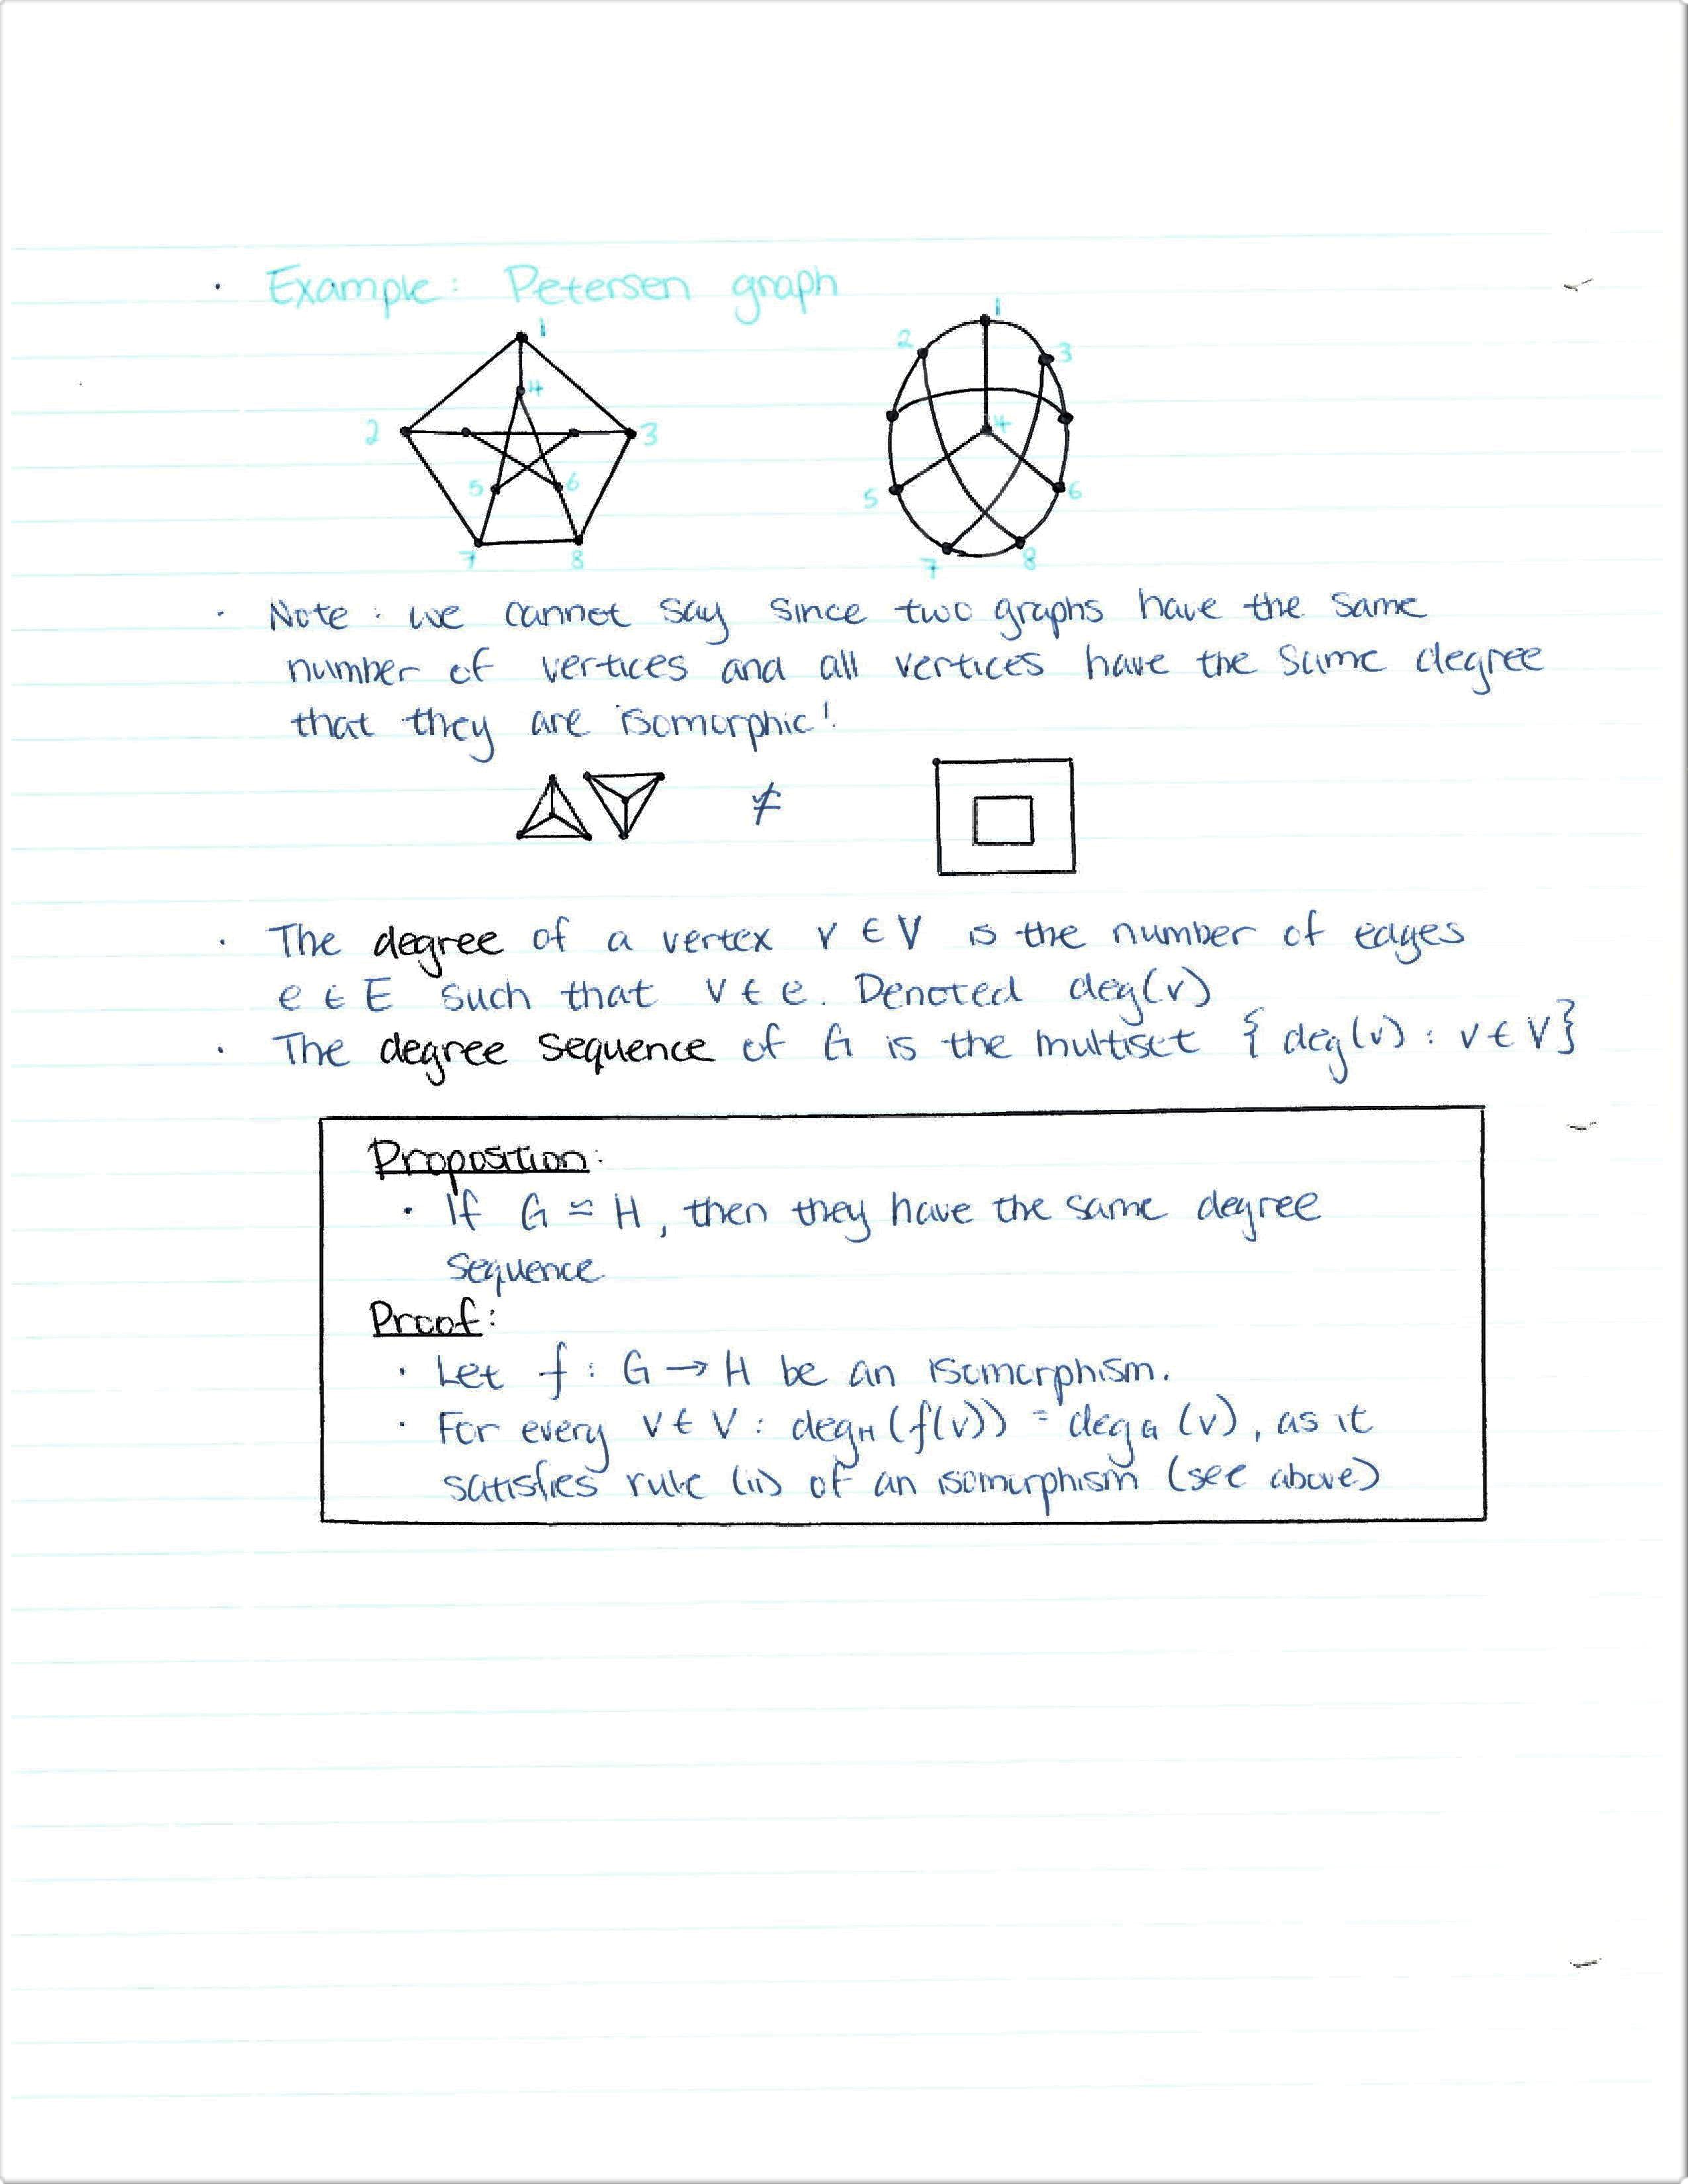 · Example: Petersen graph
1
2
4
3
5
6
7
8
1
2
3
4
5
6
7
8
· Note: we cannot say since two graphs have the same
number of vertices and all vertices have the same degree
that they are isomorphic!
≄
· The degree of a vertex v ∈ V is the number of edges
e ∈ E such that v ∈ e. Denoted deg(v)
· The degree sequence of G is the multiset { deg(v) : v ∈ V}
Proposition:
· If G ≃ H, then they have the same degree
sequence
Proof:
· Let f : G → H be an isomorphism.
· For every v ∈ V : deg_H(f(v)) = deg_G(v), as it
satisfies rule (ii) of an isomorphism (see above)